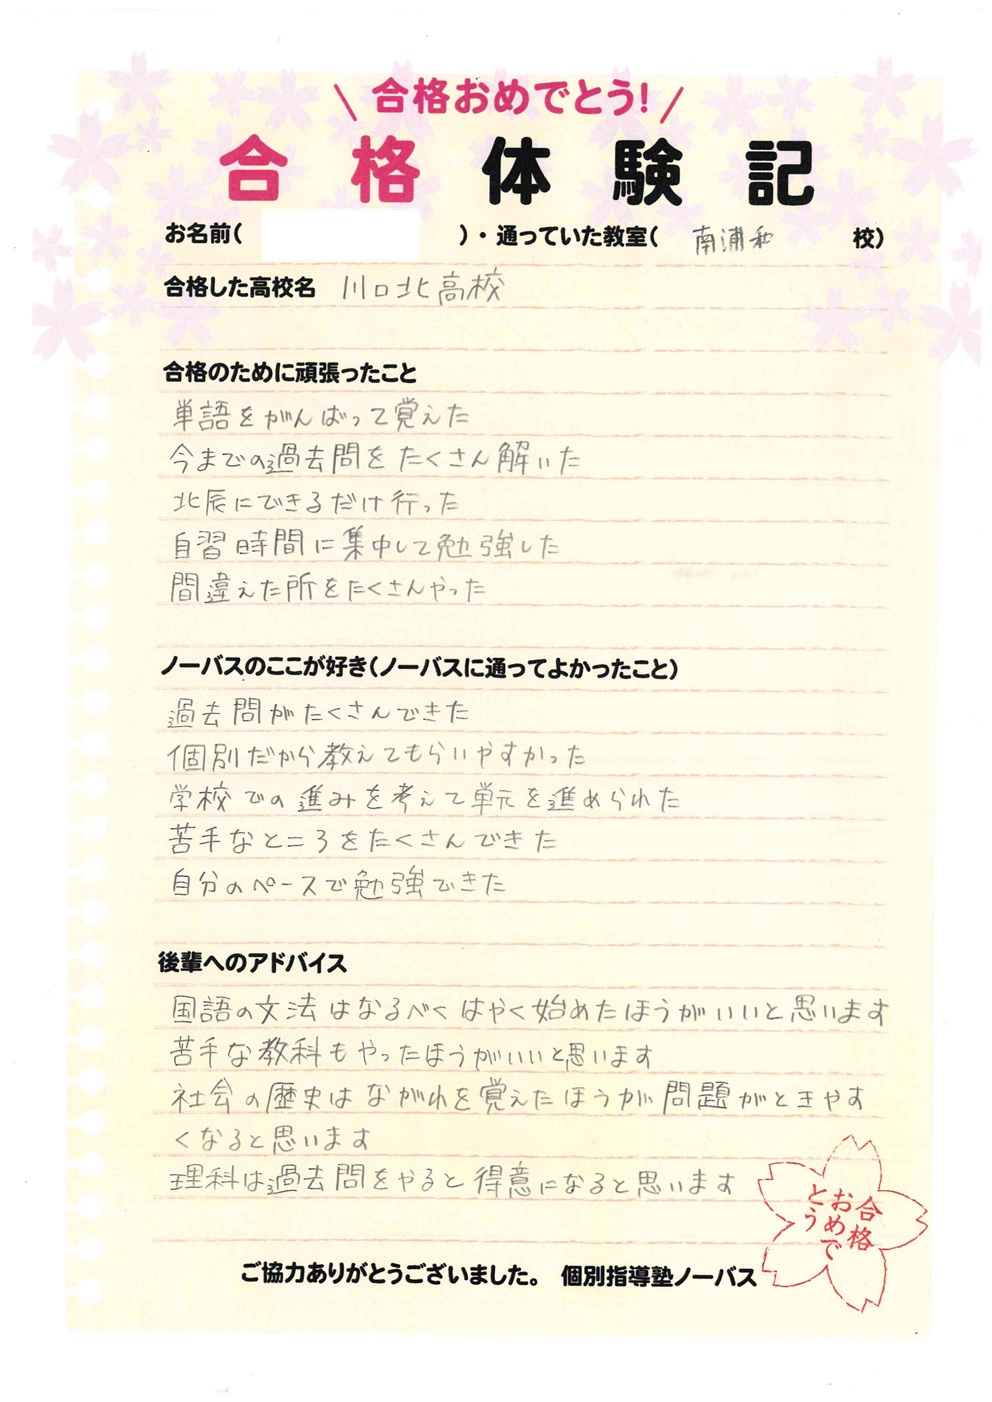 合格おめでとう！
合格体験記
お名前（　）・通っていた教室（ 南浦和 校）
合格した高校名 川口北高校
合格のために頑張ったこと
単語をがんばって覚えた
今までの過去問をたくさん解いた
北辰にできるだけ行った
自習時間に集中して勉強した
間違えた所をたくさんやった
ノーバスのここが好き（ノーバスに通ってよかったこと）
過去問がたくさんできた
個別だから教えてもらいやすかった
学校での進みを考えて単元を進められた
苦手なところをたくさんできた
自分のペースで勉強できた
後輩へのアドバイス
国語の文法はなるべくはやく始めたほうがいいと思います
苦手な教科もやったほうがいいと思います
社会の歴史はながれを覚えたほうが問題がときやす
くなると思います
理科は過去問をやると得意になると思います
合格
おめで
とう
ご協力ありがとうございました。 個別指導塾ノーバス